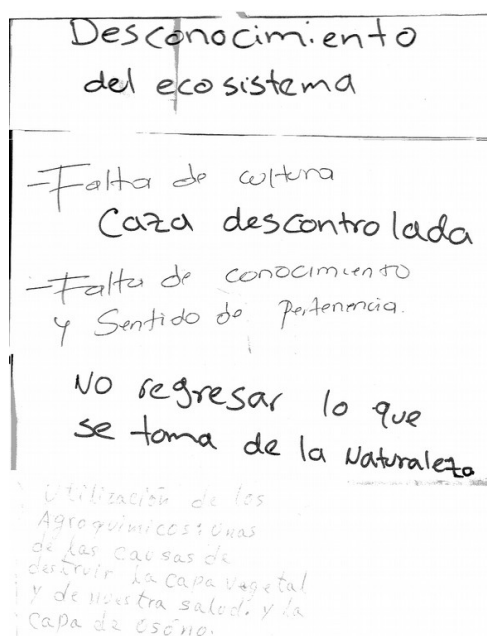 Desconocimiento
del ecosistema
-Falta de cultura
Caza descontrolada
-Falta de conocimiento
y Sentido de pertenencia.
No regresar lo que
se toma de la Naturaleza
Utilización de los
Agroquimicos: unas
de las causas de
destruir la capa vegetal
y de nuestra salud. y la
capa de osono.